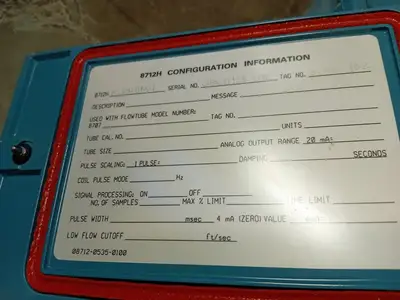 8712H CONFIGURATION INFORMATION
8712H SERIAL NO. TAG NO.
DESCRIPTION MESSAGE
USED WITH FLOWTUBE MODEL NUMBER:
8707 TAG NO.
TUBE CAL. NO. UNITS
TUBE SIZE ANALOG OUTPUT RANGE 20 mA:
PULSE SCALING: 1 PULSE= DAMPING SECONDS
COIL PULSE MODE Hz
SIGNAL PROCESSING: ON OFF
NO. OF SAMPLES MAX % LIMIT LIMIT
PULSE WIDTH msec 4 mA (ZERO) VALUE
LOW FLOW CUTOFF ft/sec
08712-0535-0100